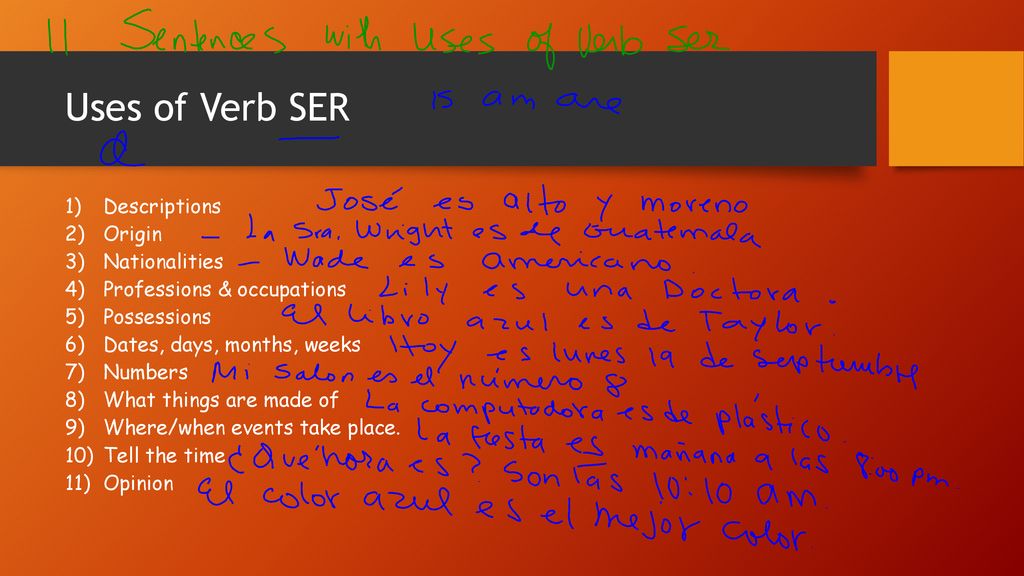 11 Sentences with Uses of Verb Ser
Uses of Verb SER is am are
1) Descriptions José es alto y moreno
2) Origin – La Sra. Wright es de Guatemala
3) Nationalities – Wade es americano.
4) Professions & occupations Lily es una Doctora.
5) Possessions El libro azul es de Taylor.
6) Dates, days, months, weeks Hoy es lunes 19 de septiembre
7) Numbers Mi salon es el número 8
8) What things are made of La computadora es de plástico.
9) Where/when events take place. La fiesta es mañana a las 8:00 pm.
10) Tell the time ¿Qué hora es? Son las 10:10 am.
11) Opinion El color azul es el mejor color.